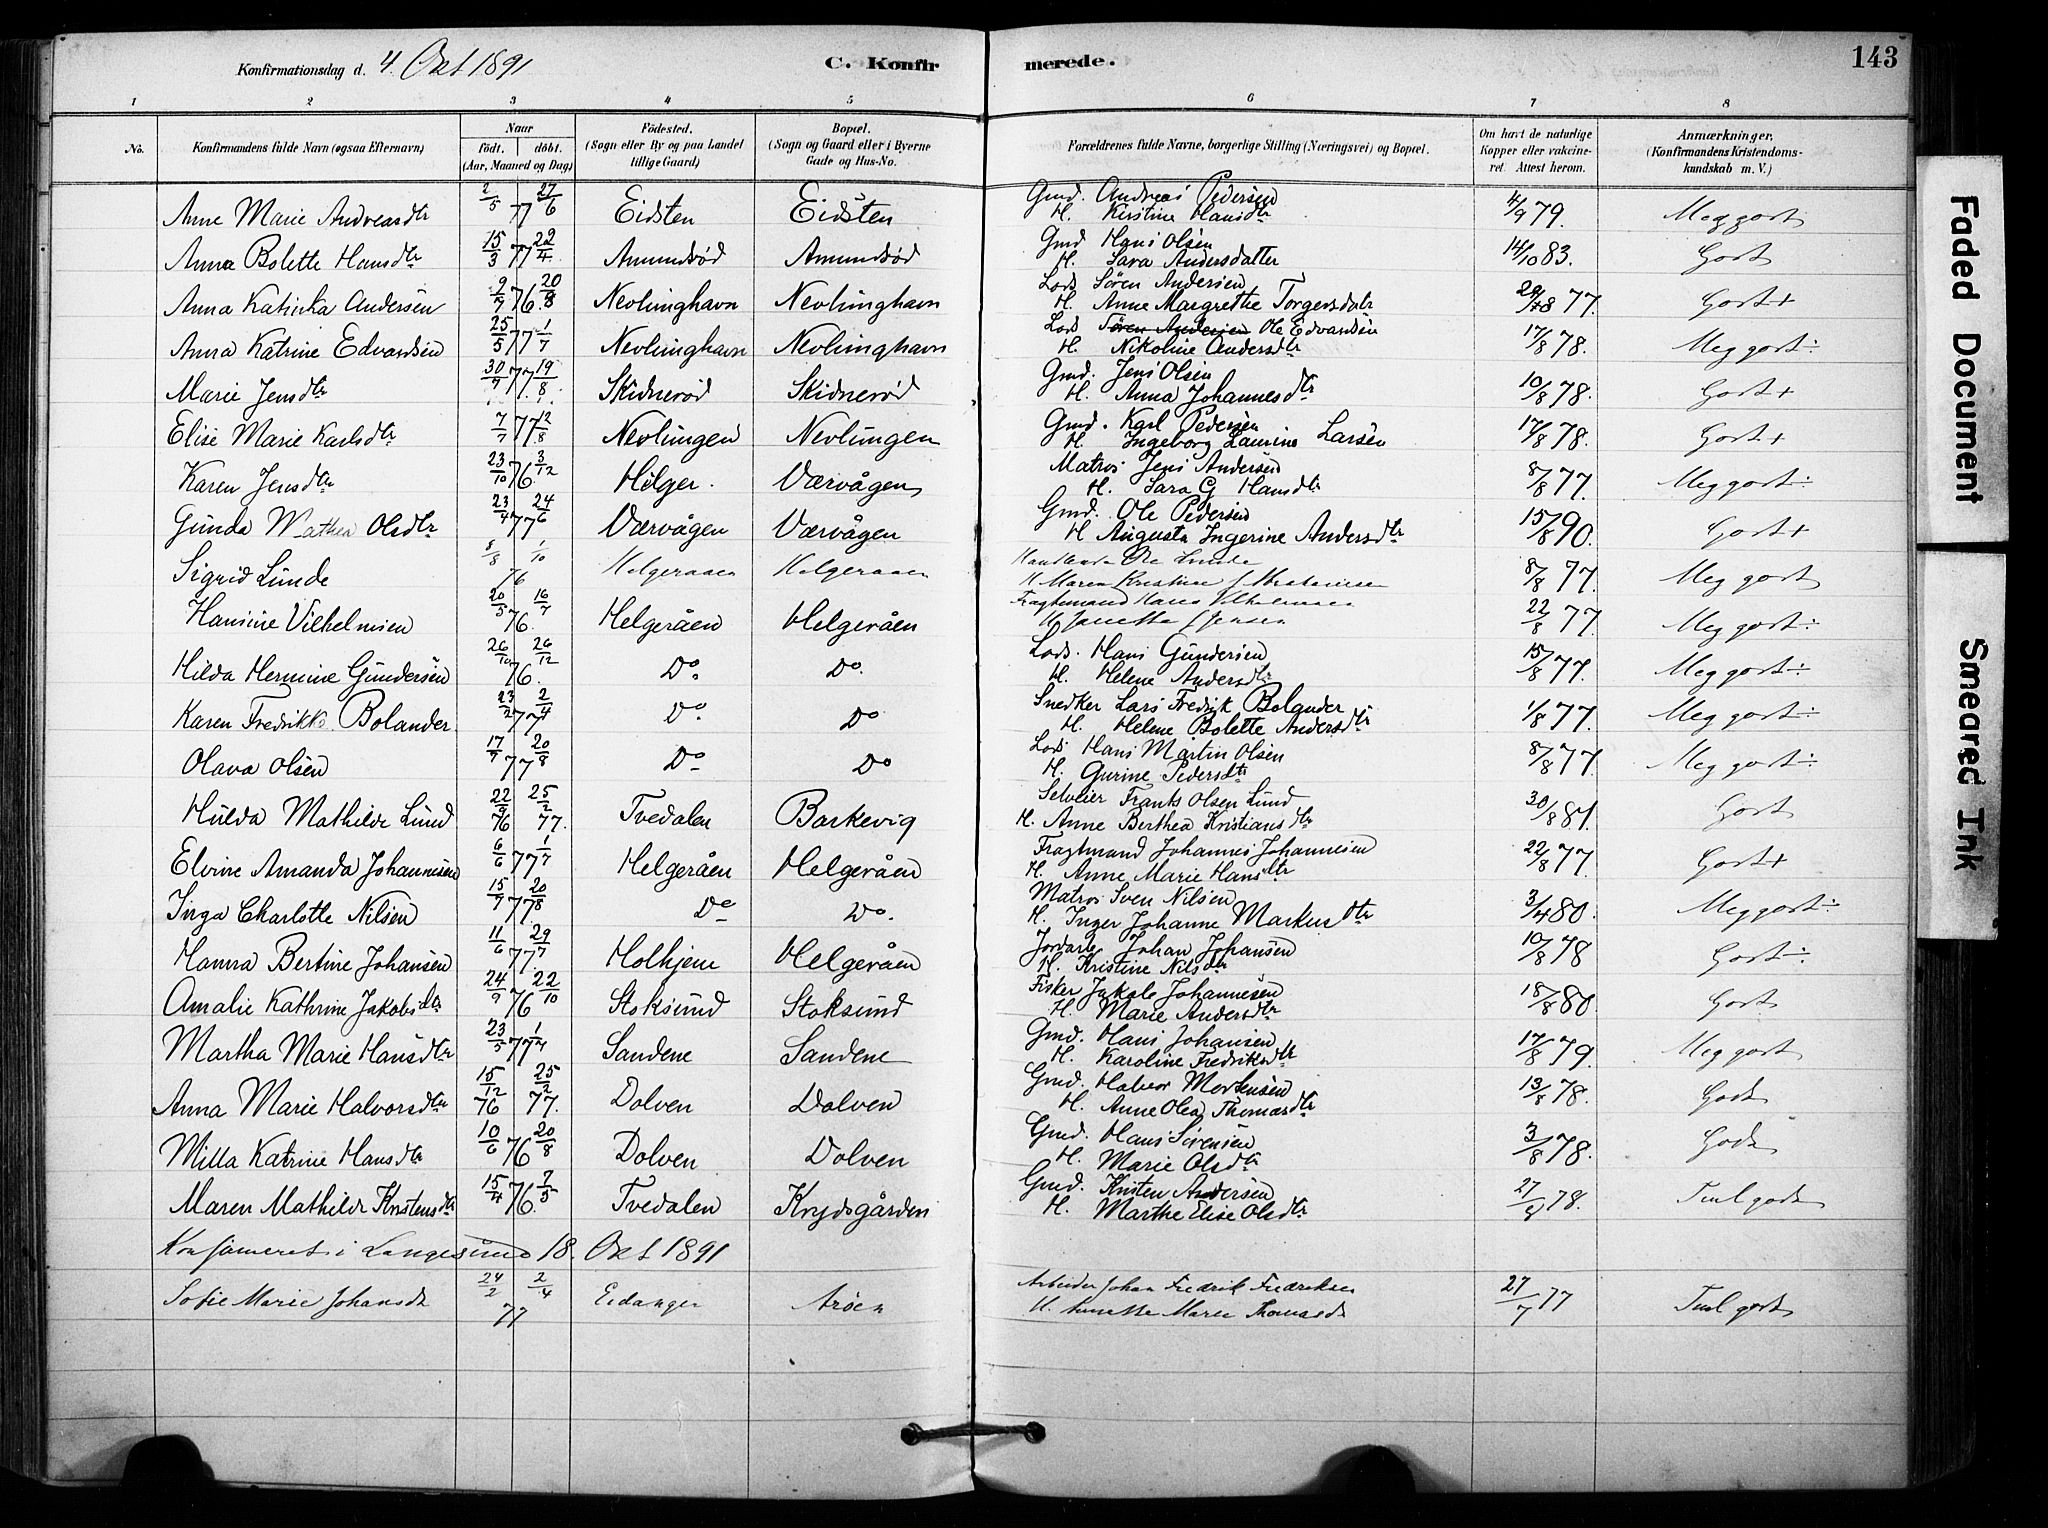 Konfirmationsdag d. 4. Okt 1891 C. Konfirmerede. 143
1 2 3 4 5 6 7 8
No. Konfirmandens fulde Navn (ogsaa Efternavn) Naar Födt. döbt. (Aar, Maaned og Dag) Födested. (Sogn eller By og paa Landet tillige Gaard) Bopæl. (Sogn og Gaard eller i Byerne Gade og Hus-No. Forældrenes fulde Navne, borgerlige Stilling (Næringsvei) og Bopæl. Om havt de naturlige Kopper eller vakcineret. Attest herom. Anmærkninger. (Konfirmandens Kristendomskundskab m. V.)
Anne Marie Andreasdtr 2/5 77 27/6 Eidsten Eidsten Gmd. Andreas Pedersen 4/9 79. Meg godt
H. Kirstine Hansdtr
Anna Bolette Hansdtr 15/3 77 22/4 Amundrød Amundrød Gmd Hans Olsen 14/10 83. Godt
H. Sara Andersdatter
Anna Katinka Andersen 9/7 76. 20/8 Nevlunghavn Nevlunghavn Lods Søren Andersen 29/8 77. Godt+
H. Anne Margrethe Torgersdatr
Anna Katrine Edvardsen 25/5 77 1/7 Nevlunghavn Nevlunghavn Lods Søren Andersen Ole Edvardsen 17/8 78. Meg godt÷
H. Nikoline Andersdtr
Marie Jensdtr 30/7 77. 19/8 Skidnerød Skidnerød Gmd. Jens Olsen 10/8 78. Godt+
H. Anna Johannesdtr
Elise Marie Karlsdtr 7/7 77 12/8 Nevlungen Nevlungen Gmd. Karl Pedersen 17/8 78. Godt+
H. Ingeborg Laurine Larsen
Karen Jensdtr 23/10 76. 3/12 Hølger. Værvågen Matros Jens Andersen 8/8 77. Meg godt÷
H. Sara G Hansdtr
Gunda Mathea Olsdtr 23/4 77 24/6 Værvågen Værvågen Gmd. Ole Pedersen 15/8 90. Godt+
H Augusta Ingerine Andersdtr
Sigrid Lunde 8/8 76 1/10 Helgeraaen Helgeraaen Handlende Ole Lunde 8/8 77. Meg godt
H Maren Kristine
Hansine Vilhelmsen 20/5 76. 16/7 Helgeråen Helgeråen Fragtemand Hans Vilhelmsen 22/8 77. Meg godt÷
H Janette Jensen
Hilda Hermine Gundersen 26/10 76. 26/12 Do. Do. Lods. Hans Gundersen 15/8 77. Meg godt÷
H. Helene Andersdtr
Karen Fredrikke Bolander 23/2 77 2/4 Do. Do Snedker Lars Fredrik Bolander 1/8 77. Meg godt÷
H. Helene Bolette Andersdtr
Olava Olsen 17/7 77 20/8 Do Do Lods Hans Martin Olsen 8/8 77. Meg godt÷
H. Gurine Pedersdtr
Hulda Mathilde Lund 22/9 76 25/2 77. Tvedalen Barkevig Selveier Frants Olsen Lund 30/8 81. Godt
H. Anne Berthea Kristiansdtr
Elvine Amanda Johannesen 6/6 77 1/7 Helgeråen Helgeråen Fragtmand Johannes Johannesen 22/8 77. Godt+
H. Anne Marie Hansdtr
Inga Charlotte Nilsen 15/7 77 20/8 Do Do. Matros Sven Nilsen 3/4 80. Meg godt÷
H. Inger Johanne Markusdtr
Hanna Bertine Johansen 11/6 77. 29/7 Holhjem Helgeråen Jordarb. Johan Johansen 10/8 78 Godt÷
H. Kristine Nilsdtr
Amalie Kathrine Jakobsdtr 24/9 76 22/10 Stoksund Stoksund Fisker Jakob Johannesen 18/8 80. Godt
H. Marie Andersdtr
Martha Marie Hansdtr 23/5 77 1/4 Sandene Sandene Gmd. Hans Johansen 17/8 79. Meg godt
H. Karoline Fredriksdtr
Anna Marie Halvorsdtr 15/12 76 25/2 77. Dolven Dolven Gmd. Halvor Mortensen 13/8 78. Godt
H. Anne Olea Thomasdtr
Milla Katrine Hansdtr 10/6 76 20/8 Dolven Dolven Gmd. Hans Sørensen 3/8 78. Godt
H. Marie Olsdtr
Maren Mathilde Kristensdtr 15/4 76. 7/5 Tvedalen Krydsgården Gmd. Kristen Andersen 27/8 78. Teml godt
H. Marthe Elise Olsdtr
Konfirmeret i Langesund 18. Okt 1891
Sofie Marie Johansdt 24/2 77 2/4 Eidanger Arøen Arbeider Johan Fredrik Fredriksen 27/7 77 Teml godt
H. Anette Maren Thomasdt
Faded Document
Smeared Ink